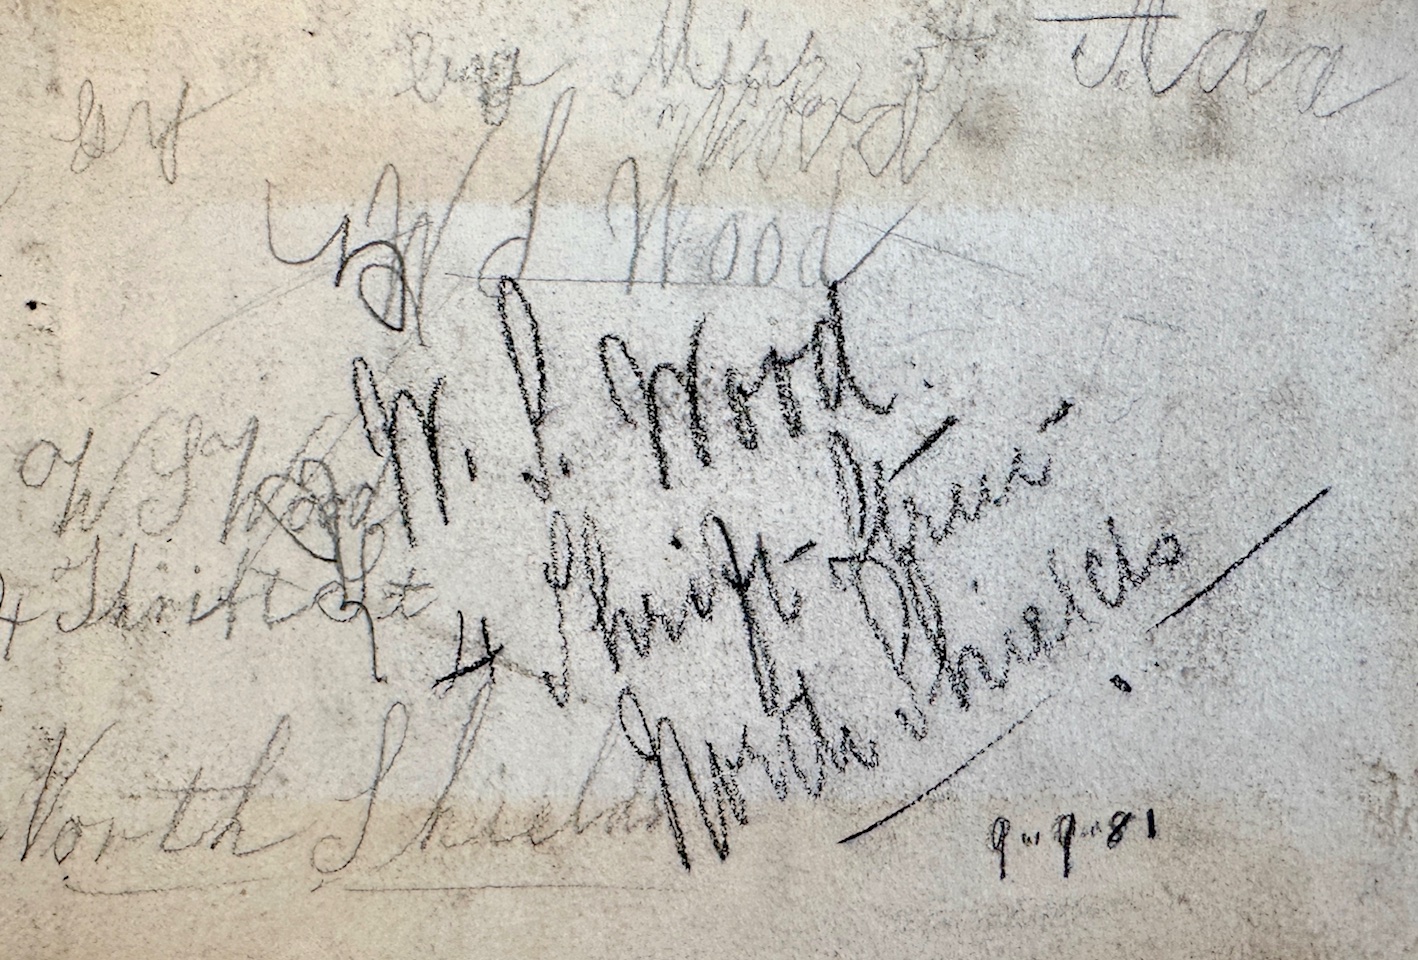 Miss Ada
Wood
W S Wood
W. S. Wood.
W S Wood
4 Thrift Street
4 Thrift St
North Shields
North Shields
9"9"81